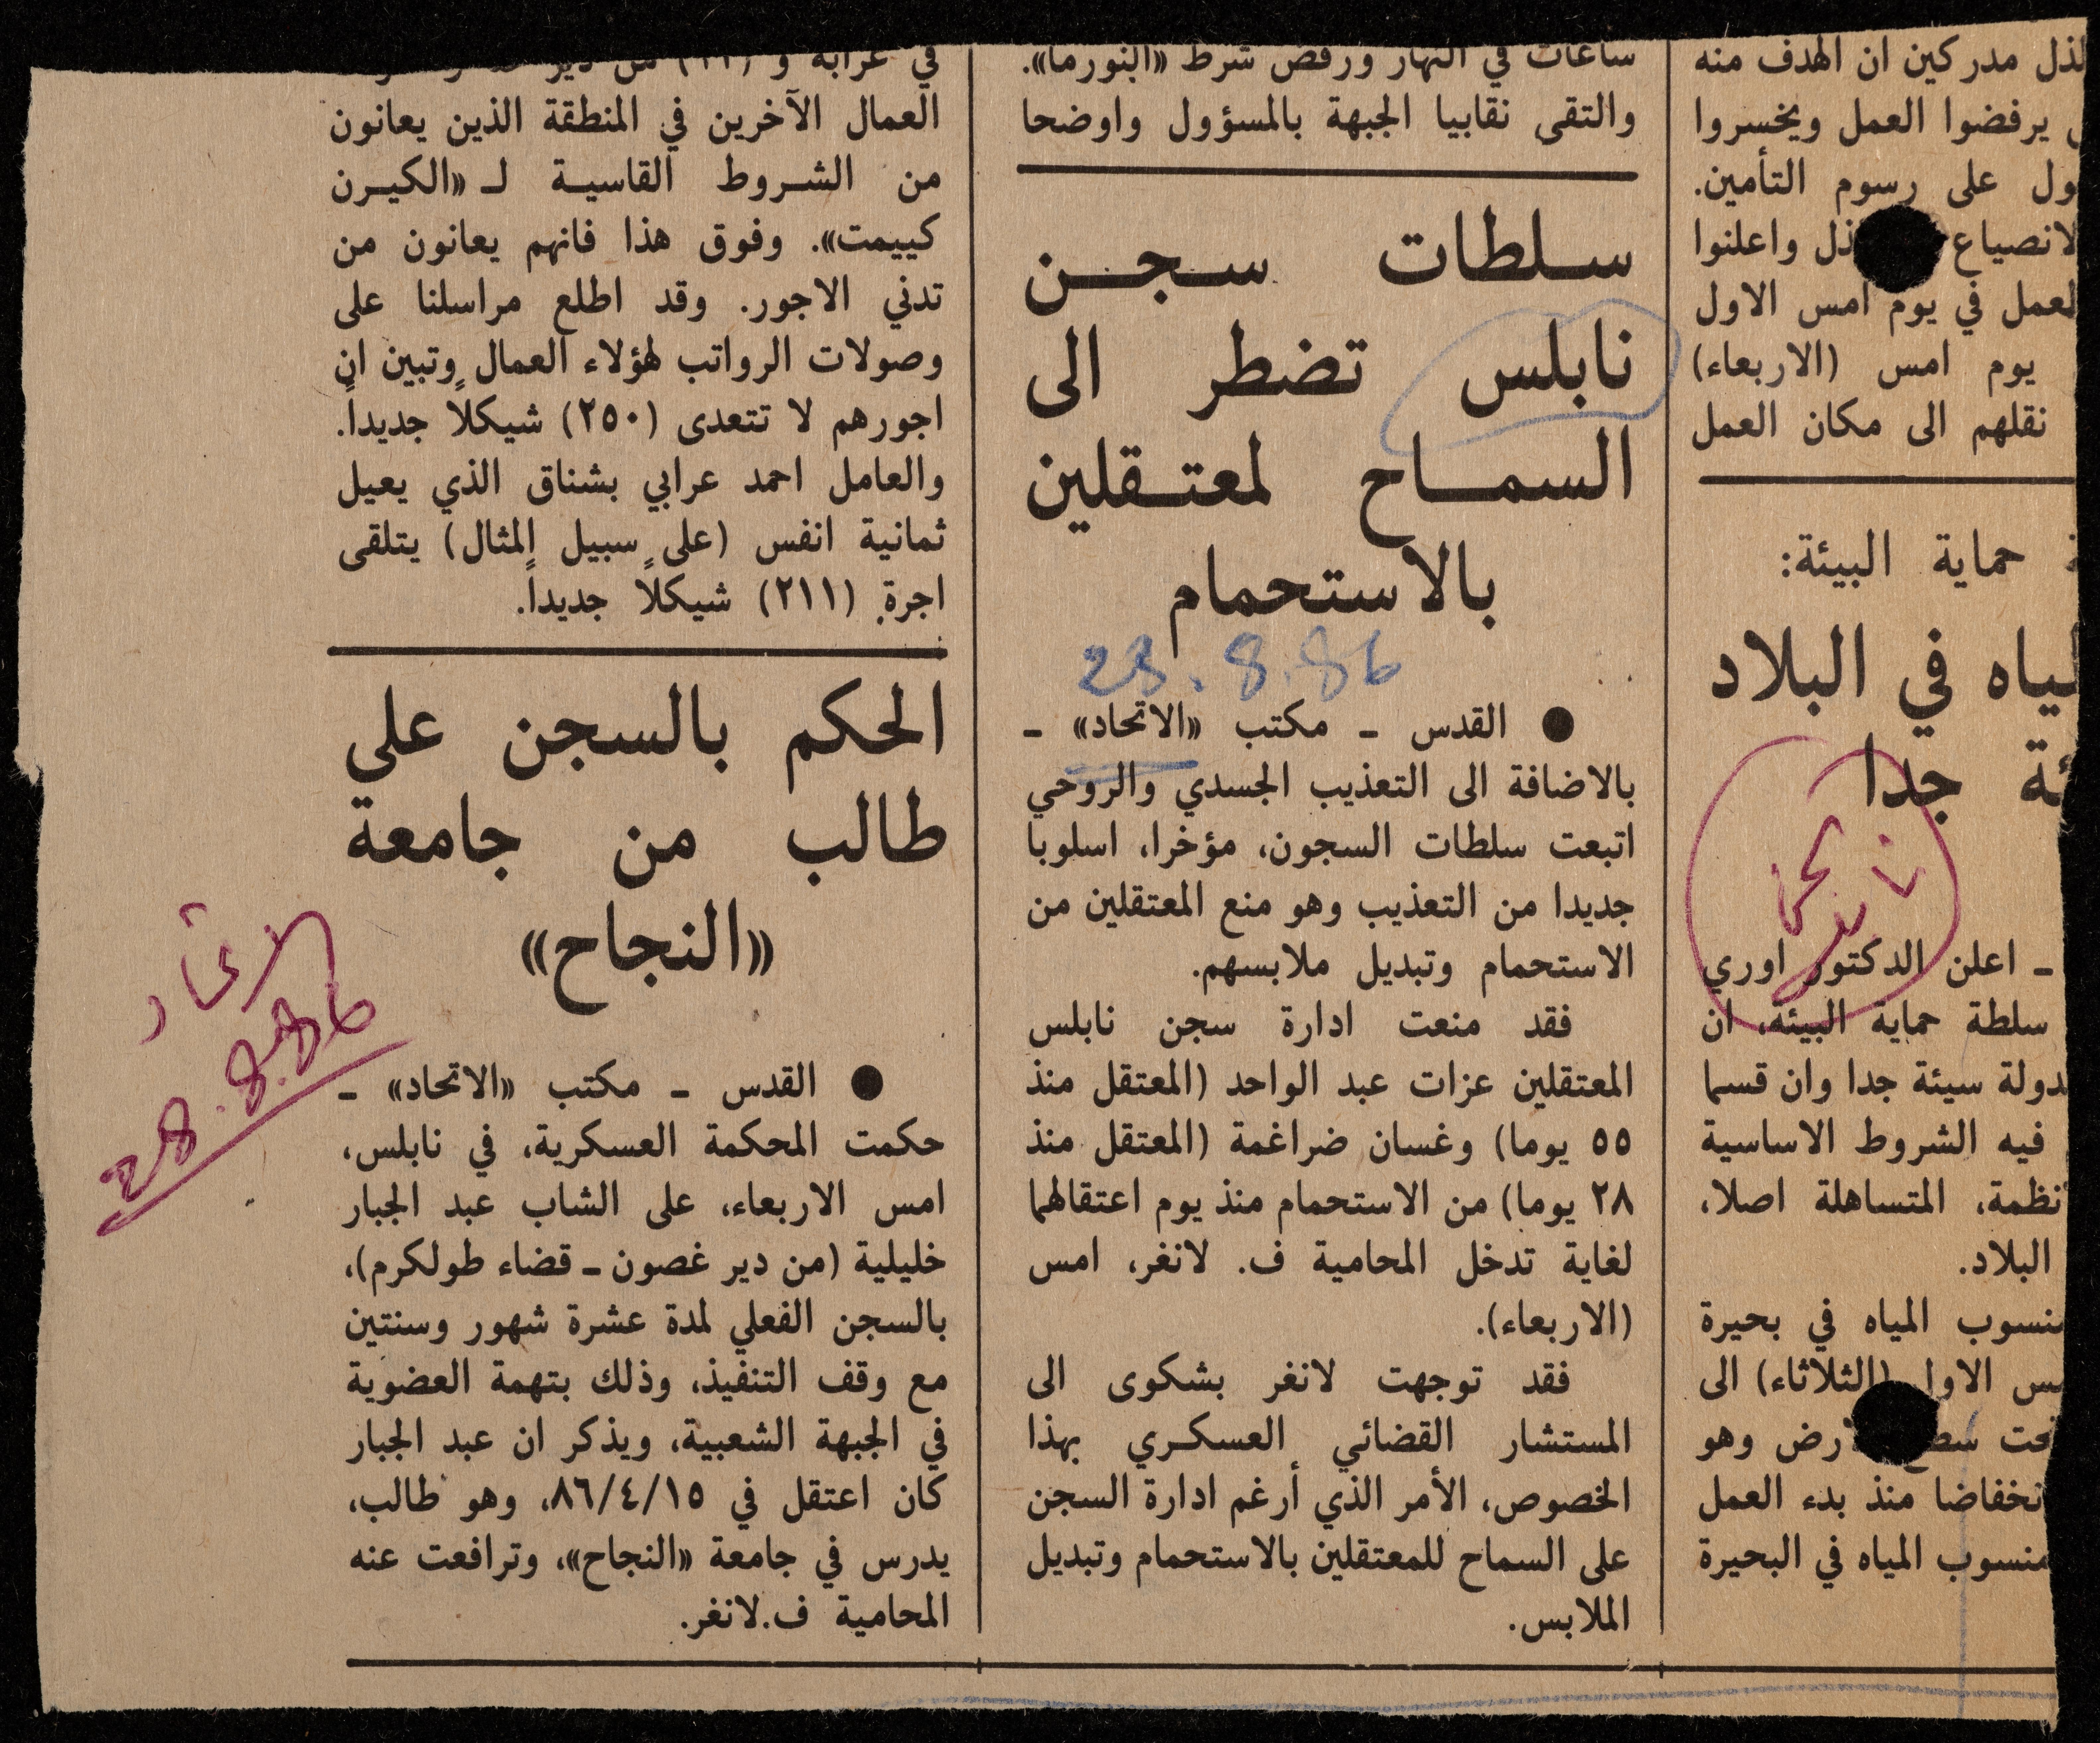 لذل مدركين ان الهدف منه
يرفضوا العمل ويخسروا
ول على رسوم التأمين.
لانصياع ذل واعلنوا
لعمل في يوم امس الاول
يوم امس (الاربعاء)
نقلهم الى مكان العمل
حماية البيئة:
لياه في البلاد
ئة جدا
ـ اعلن الدكتور اوري
سلطة حماية البيئة، ان
دولة سيئة جدا وان قسما
فيه الشروط الاساسية
نظمة، المتساهلة اصلا،
البلاد.
منسوب المياه في بحيرة
مس الاول (الثلاثاء) الى
تحت سطح لارض وهو
نخفاضا منذ بدء العمل
منسوب المياه في البحيرة
ساعات في النهار ورفض شرط «النورما».
والتقى نقابيا الجبهة بالمسؤول واوضحا
سلطات سجن
نابلس تضطر الى
السماح لمعتقلين
بالاستحمام
23.8.86
● القدس ـ مكتب «الاتحاد» ـ
بالاضافة الى التعذيب الجسدي والروحي
اتبعت سلطات السجون، مؤخرا، اسلوبا
جديدا من التعذيب وهو منع المعتقلين من
الاستحمام وتبديل ملابسهم.
فقد منعت ادارة سجن نابلس
المعتقلين عزات عبد الواحد (المعتقل منذ
٥٥ يوما) وغسان ضراغمة (المعتقل منذ
٢٨ يوما) من الاستحمام منذ يوم اعتقالهما
لغاية تدخل المحامية ف. لانغر، امس
(الاربعاء).
فقد توجهت لانغر بشكوى الى
المستشار القضائي العسكري بهذا
الخصوص، الأمر الذي أرغم ادارة السجن
على السماح للمعتقلين بالاستحمام وتبديل
الملابس.
في عرابة و
العمال الآخرين في المنطقة الذين يعانون
من الشروط القاسية لـ «الكيرن
كييمت». وفوق هذا فانهم يعانون من
تدني الاجور. وقد اطلع مراسلنا على
وصولات الرواتب لهؤلاء العمال وتبين ان
اجورهم لا تتعدى (٢٥٠) شيكلاً جديداً.
والعامل احمد عرابي بشناق الذي يعيل
ثمانية انفس (على سبيل المثال) يتلقى
اجرة (٢١١) شيكلاً جديداً.
الحكم بالسجن على
طالب من جامعة
«النجاح»
● القدس ـ مكتب «الاتحاد» ـ
حكمت المحكمة العسكرية، في نابلس،
امس الاربعاء، على الشاب عبد الجبار
خليلية (من دير غصون ـ قضاء طولكرم)،
بالسجن الفعلي لمدة عشرة شهور وسنتين
مع وقف التنفيذ، وذلك بتهمة العضوية
في الجبهة الشعبية، ويذكر ان عبد الجبار
كان اعتقل في ٨٦/٤/١٥، وهو طالب،
يدرس في جامعة «النجاح»، وترافعت عنه
المحامية ف.لانغر.
اتحاد
28.8.86